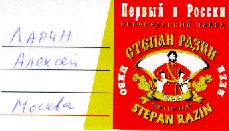 Ларин
Алексей
Москва
Первый в России
СТЕПАН РАЗИН
ПИВО
BEER
STEPAN RAZIN